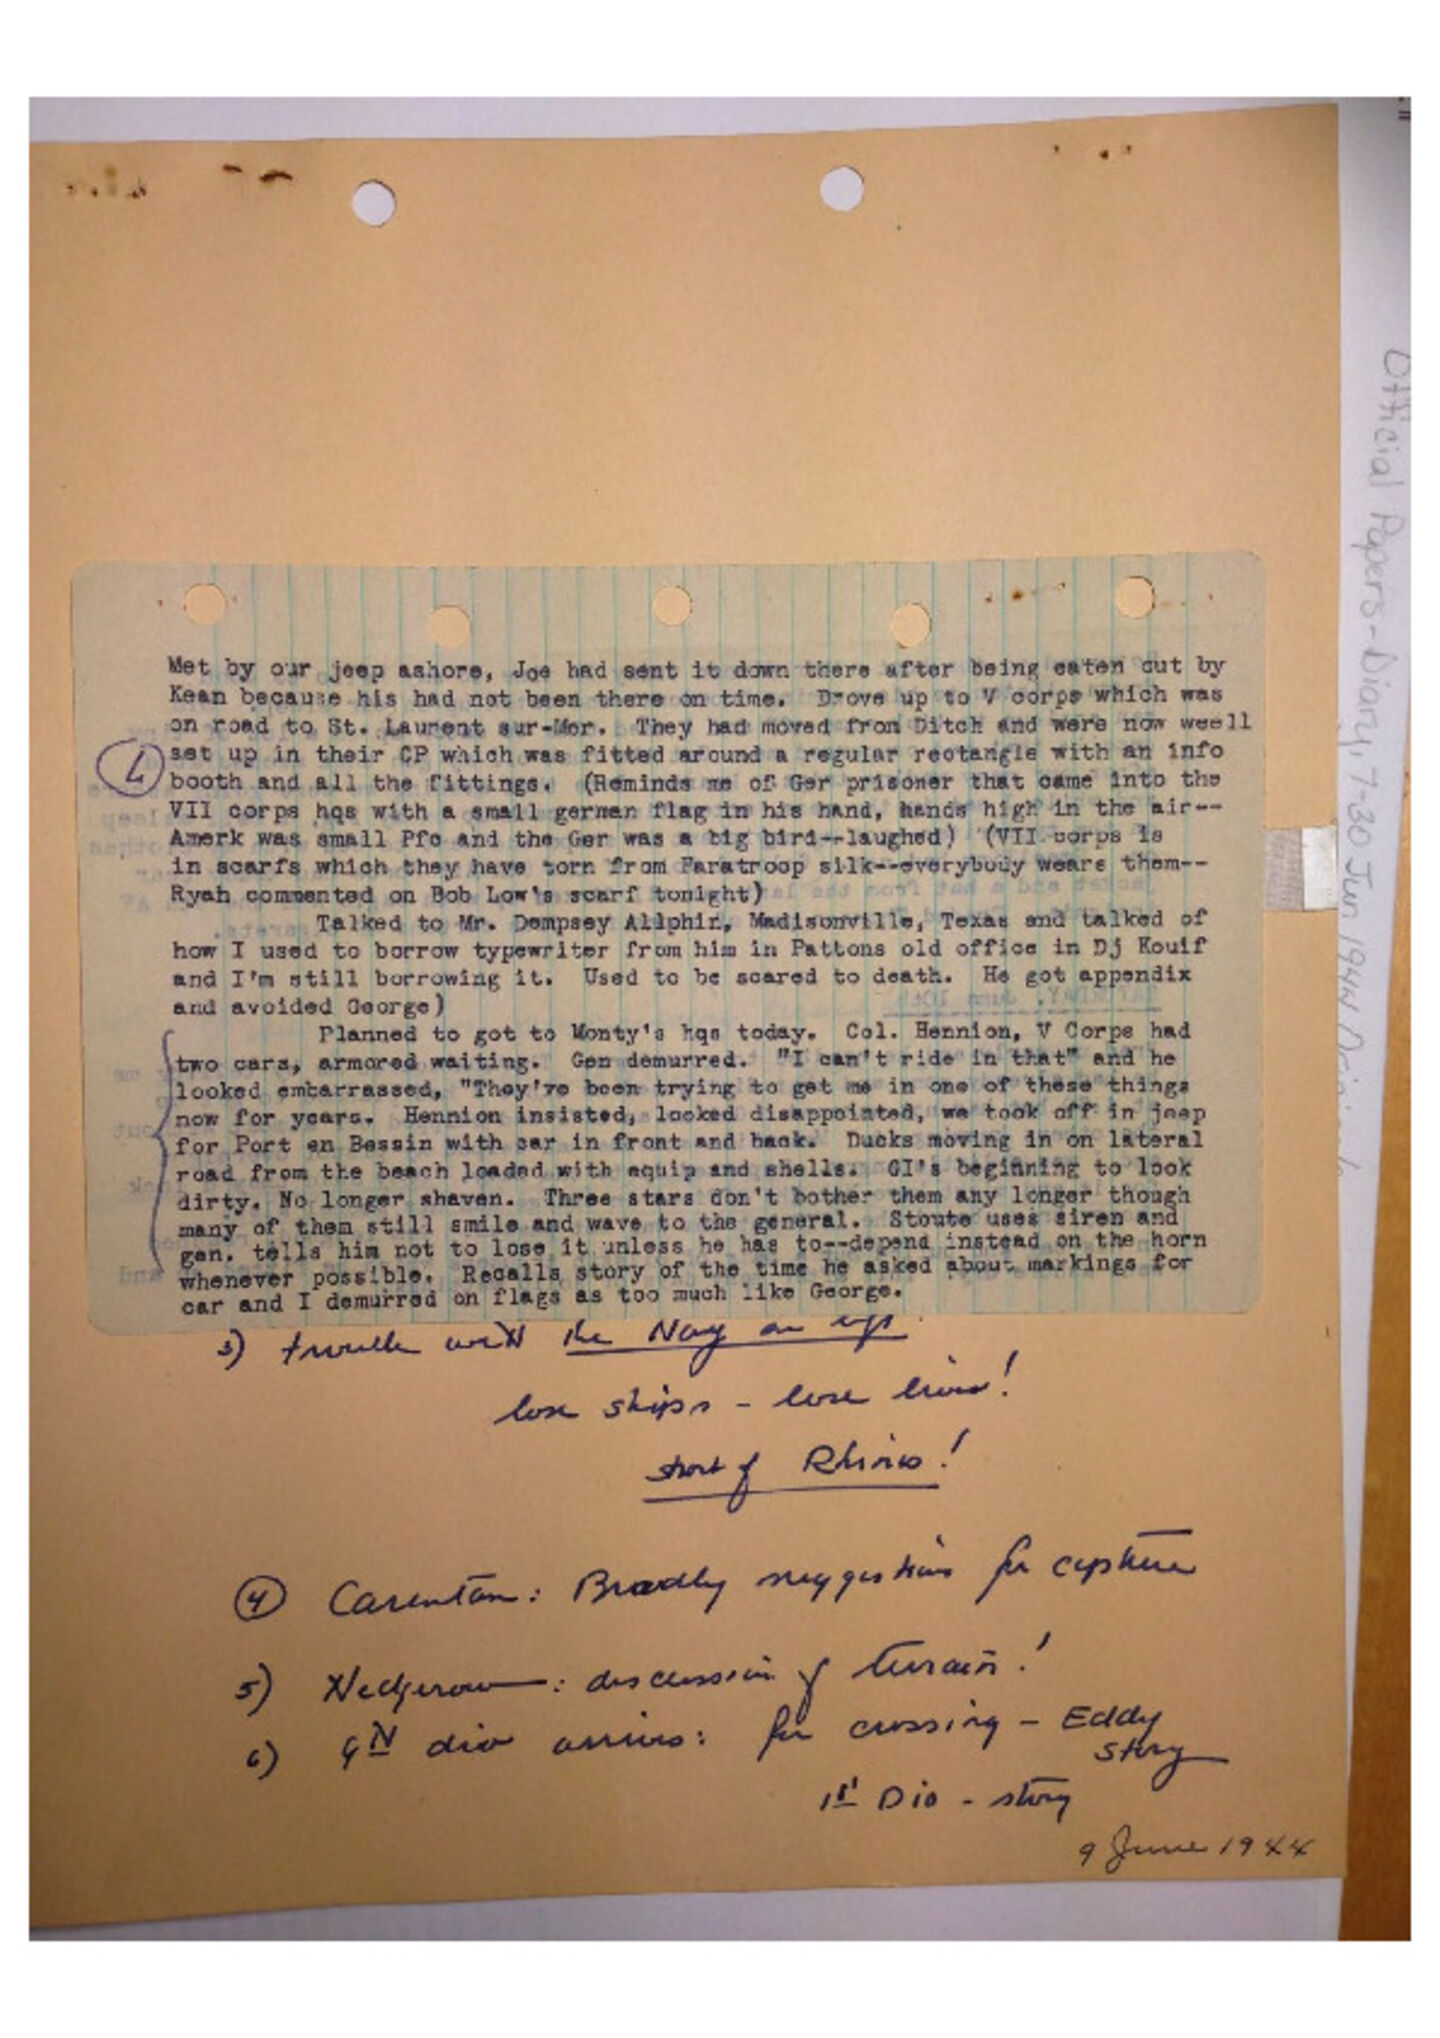 Met by our jeep ashore, Joe had sent it down there after being eaten out by
Kean because his had not been there on time.  Drove up to V corps which was
on road to St. Laurent sur-Mer.  They had moved from Ditch and were now weell
set up in their CP which was fitted around a regular rectangle with an info
booth and all the fittings.  (Reminds me of Ger prisoner that came into the
VII corps hqs with a small german flag in his hand, hands high in the air--
Amerk was small Pfc and the Ger was a big bird--laughed)  (VII corps is
in scarfs which they have torn from Paratroop silk--everybody wears them--
Ryan commented on Bob Low's scarf tonight)
Talked to Mr. Dempsey Allphin, Madisonville, Texas and talked of
how I used to borrow typewriter from him in Pattons old office in Dj Kouif
and I'm still borrowing it.  Used to be scared to death.  He got appendix
and avoided George)
Planned to got to Monty's hqs today.  Col. Hennion, V Corps had
two cars, armored waiting.  Gen demurred.  "I can't ride in that" and he
looked embarrassed, "They've been trying to get me in one of these things
now for years.  Hennion insisted, looked disappointed, we took off in jeep
for Port en Bessin with car in front and back.  Ducks moving in on lateral
road from the beach loaded with equip and shells.  GI's beginning to look
dirty. No longer shaven.  Three stars don't bother them any longer though
many of them still smile and wave to the general.  Stoute uses siren and
gen. tells him not to lose it unless he has to--depend instead on the horn
whenever possible.  Recalls story of the time he asked about markings for
car and I demurred on flags as too much like George.
3) trouble with the Navy on
lose ships - lose lives!
short of Rhinos!
4 Carentan: Bradley suggestions for capture
5) Hedgerow: discussion of terrain!
6) 9th div arrives: for crossing - Eddy
story
1st Div - story
9 June 1944
Official Papers-Diary, 7-30 Jun 1944